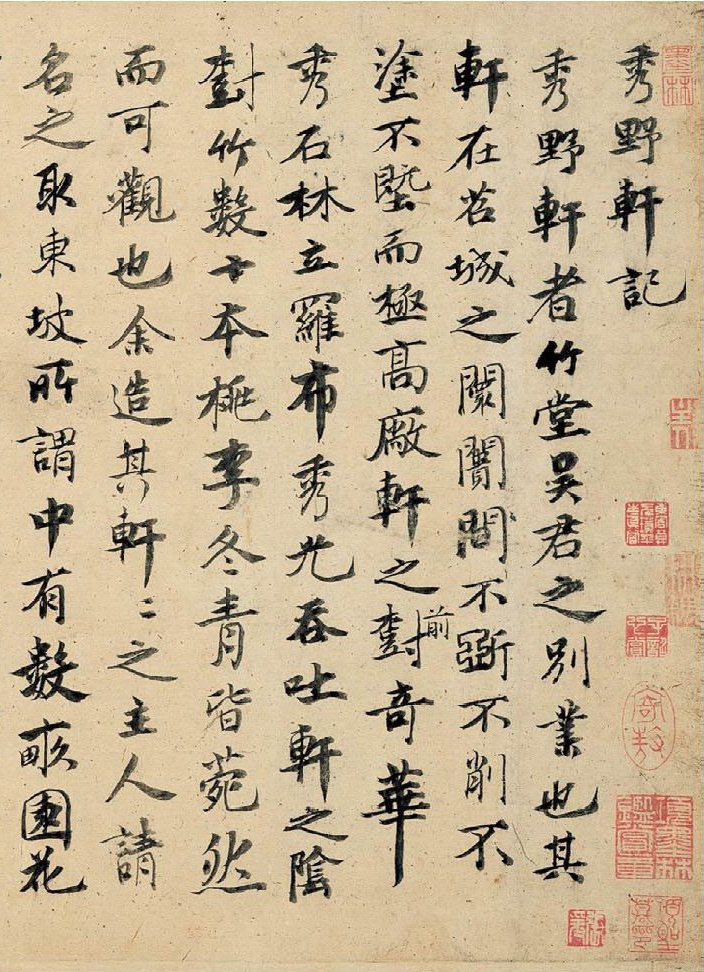 秀野軒記
秀野軒者竹堂吳君之別業也其
軒在苕城之闤闠間不斲不削不
塗不墍而極高廠軒之前對奇華
秀石林立羅布秀光吞吐軒之陰
對竹數十本桃李冬青皆菀然
而可觀也余造其軒〻之主人請
名之取東坡所謂中有數畝園花